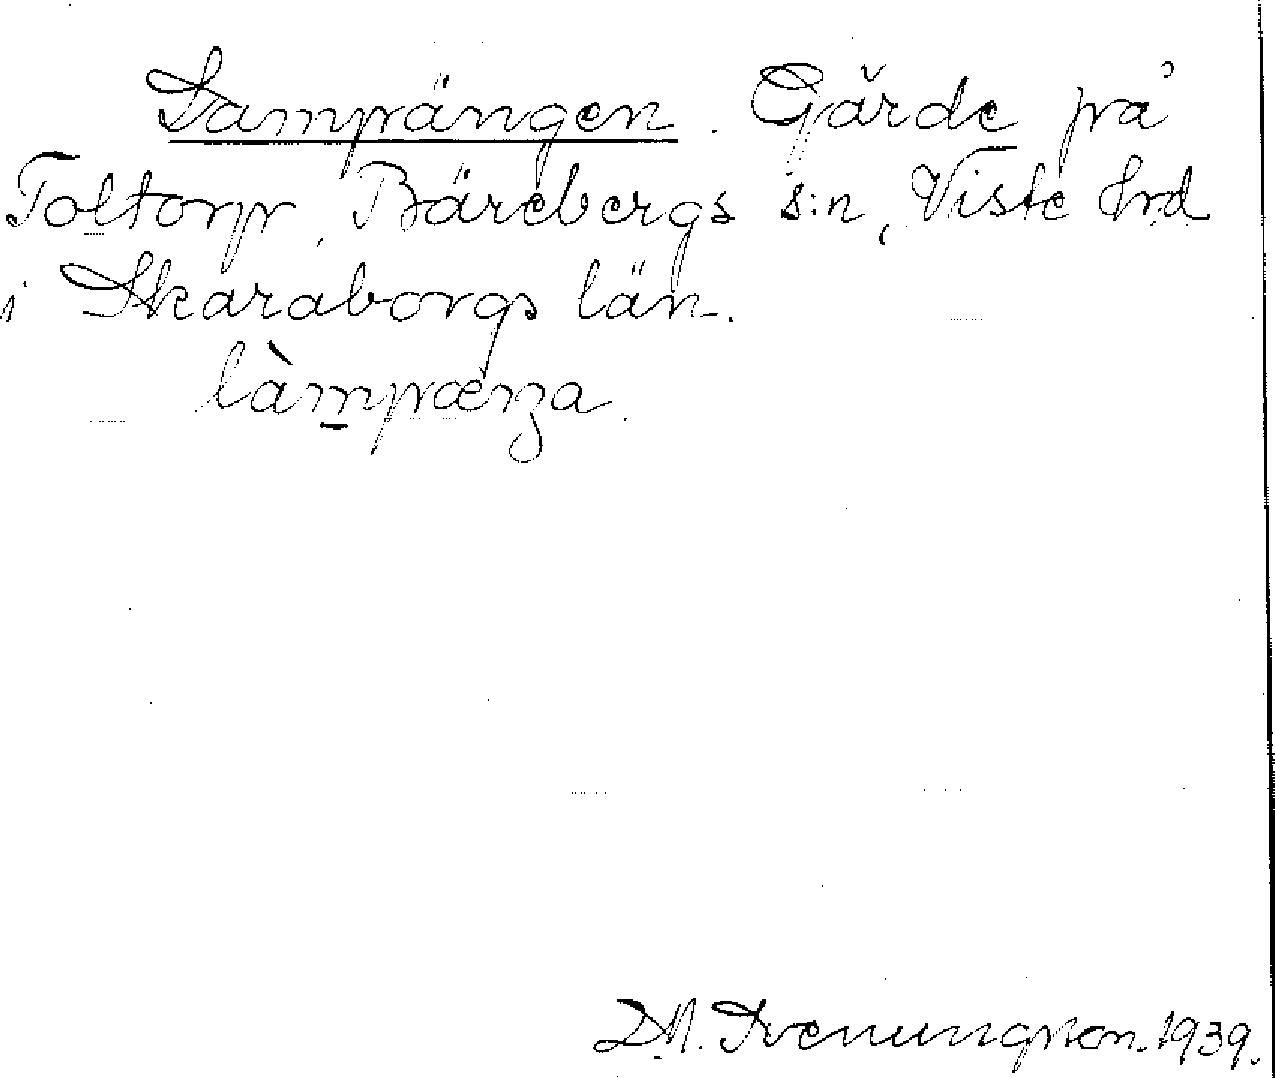 Lampängen. Gärde på
Toltorp, Bärebergs s:n, Viste hrd
i Skaraborgs län.
làmpænŋa.
D.A. Svenungsson. 1939.